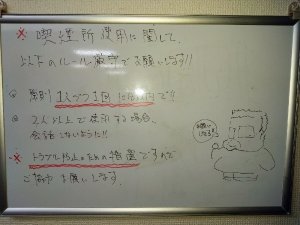 ※ 喫煙所使用に関して、
以下のルール厳守でお願いします!!
◎ 原則 1人づつ1回 で!!
◎ 2人以上で使用する場合、
会話しないように!!
※ トラブル防止のための措置ですので
ご協力お願いします。